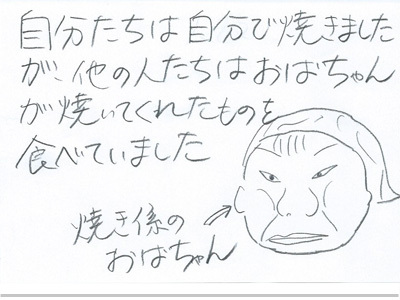 自分たちは自分で焼きました
が、他の人たちはおばちゃん
が焼いてくれたものを
食べていました
焼き係の
おばちゃん